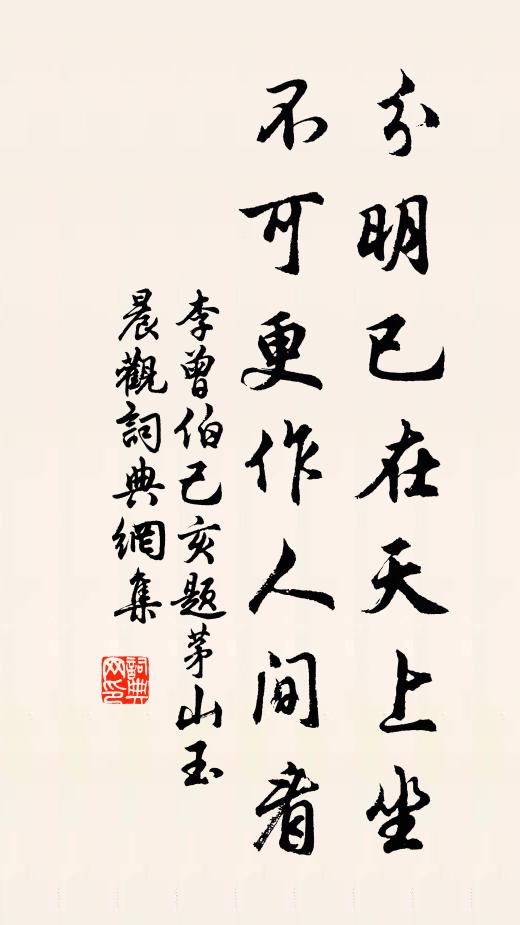 分明已在天上坐
不可更作人间看
李曾伯己亥题茅山玉
晨觀詞典網集
詞典网印